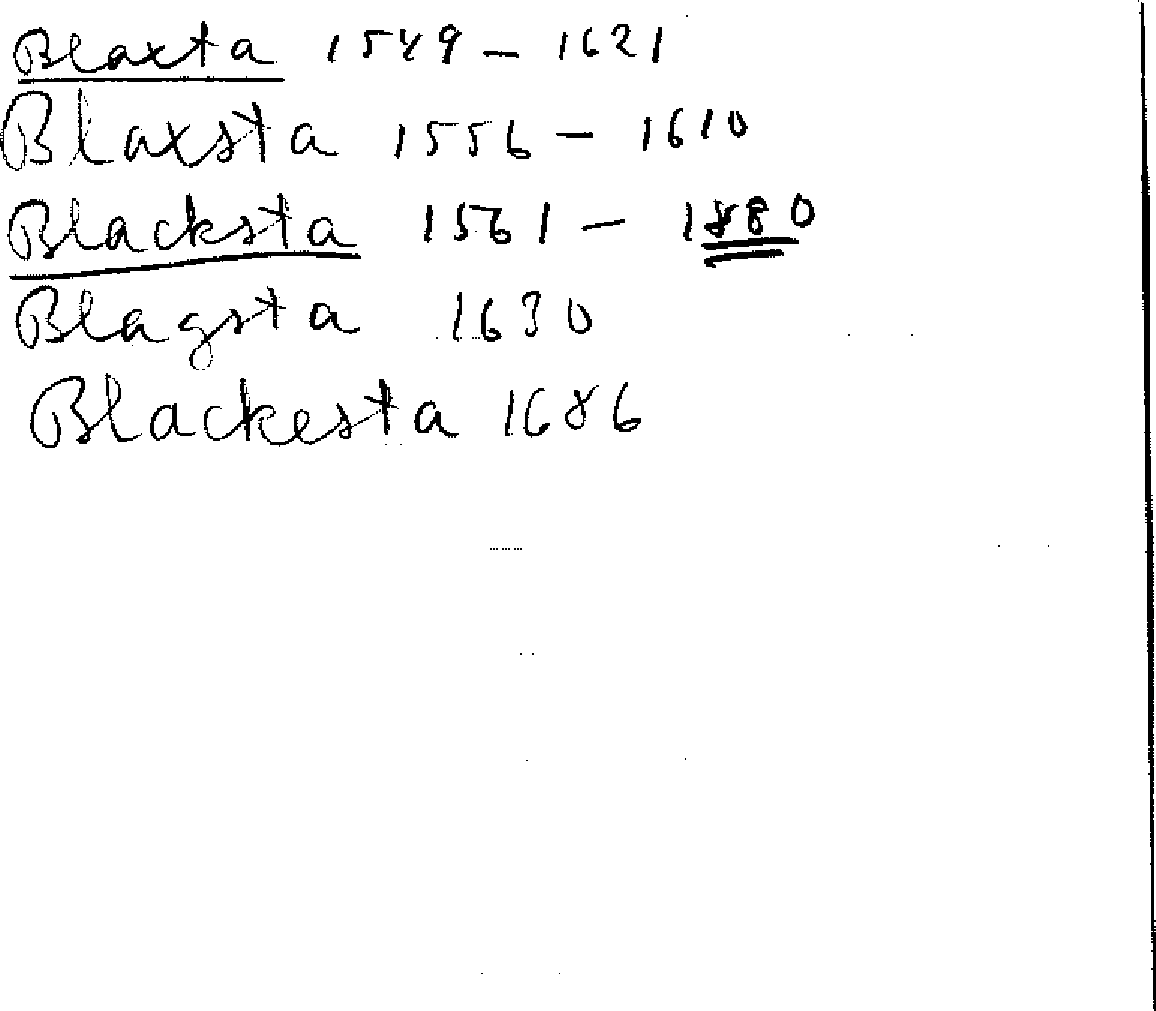 Blaxta 1549 - 1621
Blaxsta 1556 - 1610
Blacksta 1561 - 1880
Blagsta 1630
Blackesta 1686